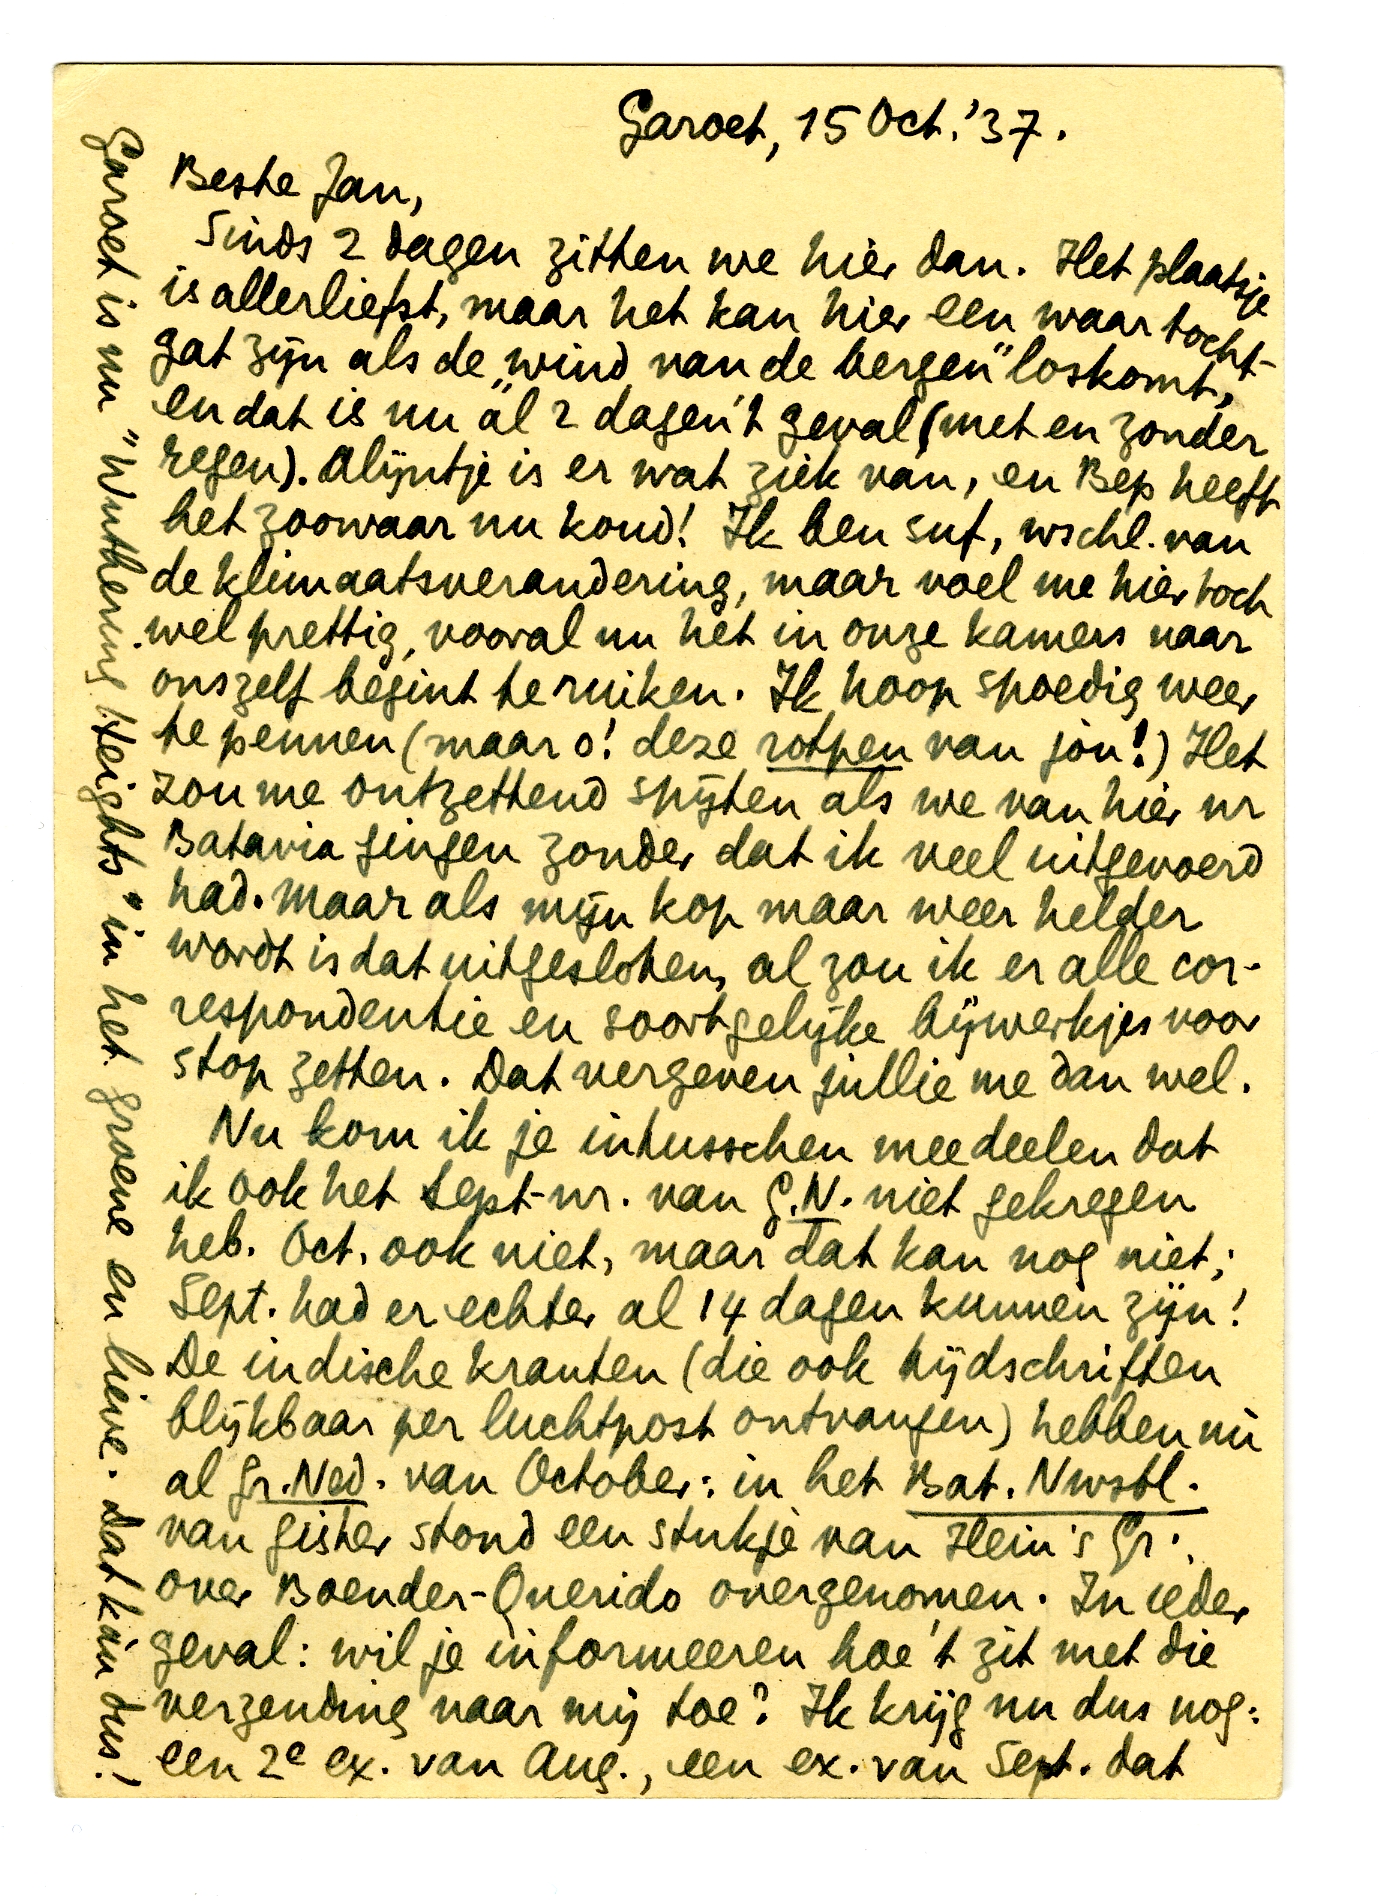 Garoet, 15 Oct. '37.
Beste Jan,
Sinds 2 dagen zitten we hier dan. Het plaatsje
is allerliefst, maar het kan hier een waar tocht-
gat zijn als de „wind van de bergen" loskomt,
en dat is nu àl 2 dagen 't geval (met en zonder
regen). Alijntje is er wat ziek van, en Bep heeft
het zoowaar nu koud! Ik ben suf, wschl. van
de klimaatsverandering, maar voel me hier toch
wel prettig, vooral nu het in onze kamers naar
onszelf begint te ruiken. Ik hoop spoedig weer
te pennen (maar o! deze rotpen van jòu!) Het
zou me ontzettend spijten als we van hier nr
Batavia gingen zonder dat ik veel uitgevoerd
had. Maar als mijn kop maar weer helder
wordt is dat uitgesloten, al zou ik er alle cor-
respondentie en soortgelijke bijwerkjes voor
stop zetten. Dat vergeven jullie me dan wel.
Nu kom ik je intusschen meedeelen dat
ik ook het Sept-nr. van G.N. niet gekregen
heb. Oct. ook niet, maar dat kan nog niet;
Sept. had er echter al 14 dagen kunnen zijn!
De indische kranten (die ook tijdschriften
blijkbaar per luchtpost ontvangen) hebben nu
al Gr. Ned. van October: in het Bat. Nwsbl.
van gister stond een stukje van Hein's Gr.
over Boender-Querido overgenomen. In ieder
geval: wil je informeeren hoe 't zit met die
verzending naar mij toe? Ik krijg nu dus nog:
een 2e ex. van Aug., een ex. van Sept. dat
Garoet is nu „Wuthering Heights" in het groene en lieve. Dat kán dus!